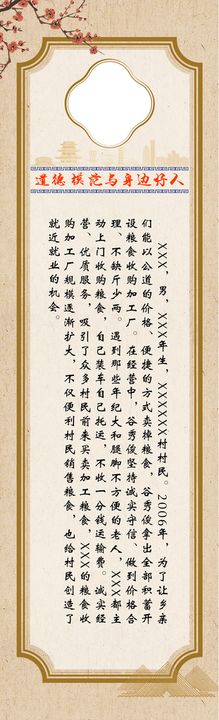 道德模范与身边好人
XXX，男，XXX年生，XXXXXX村村民。2006年，为了让乡亲
们能以公道的价格、便捷的方式卖掉粮食，谷秀俊拿出全部积蓄开
设粮食收购加工厂。在经营中，谷秀俊坚持诚实守信、做到价格合
理、不缺斤少两。遇到那些年纪大和腿脚不方便的老人，XXX都主
动上门收购粮食，自己装车自己托运，不收一分钱运输费。诚实经
营、优质服务，吸引了众多村民前来买卖加工粮食，XXX的粮食收
购加工厂规模逐渐扩大，不仅便利村民销售粮食，也给村民创造了
就近就业的机会。